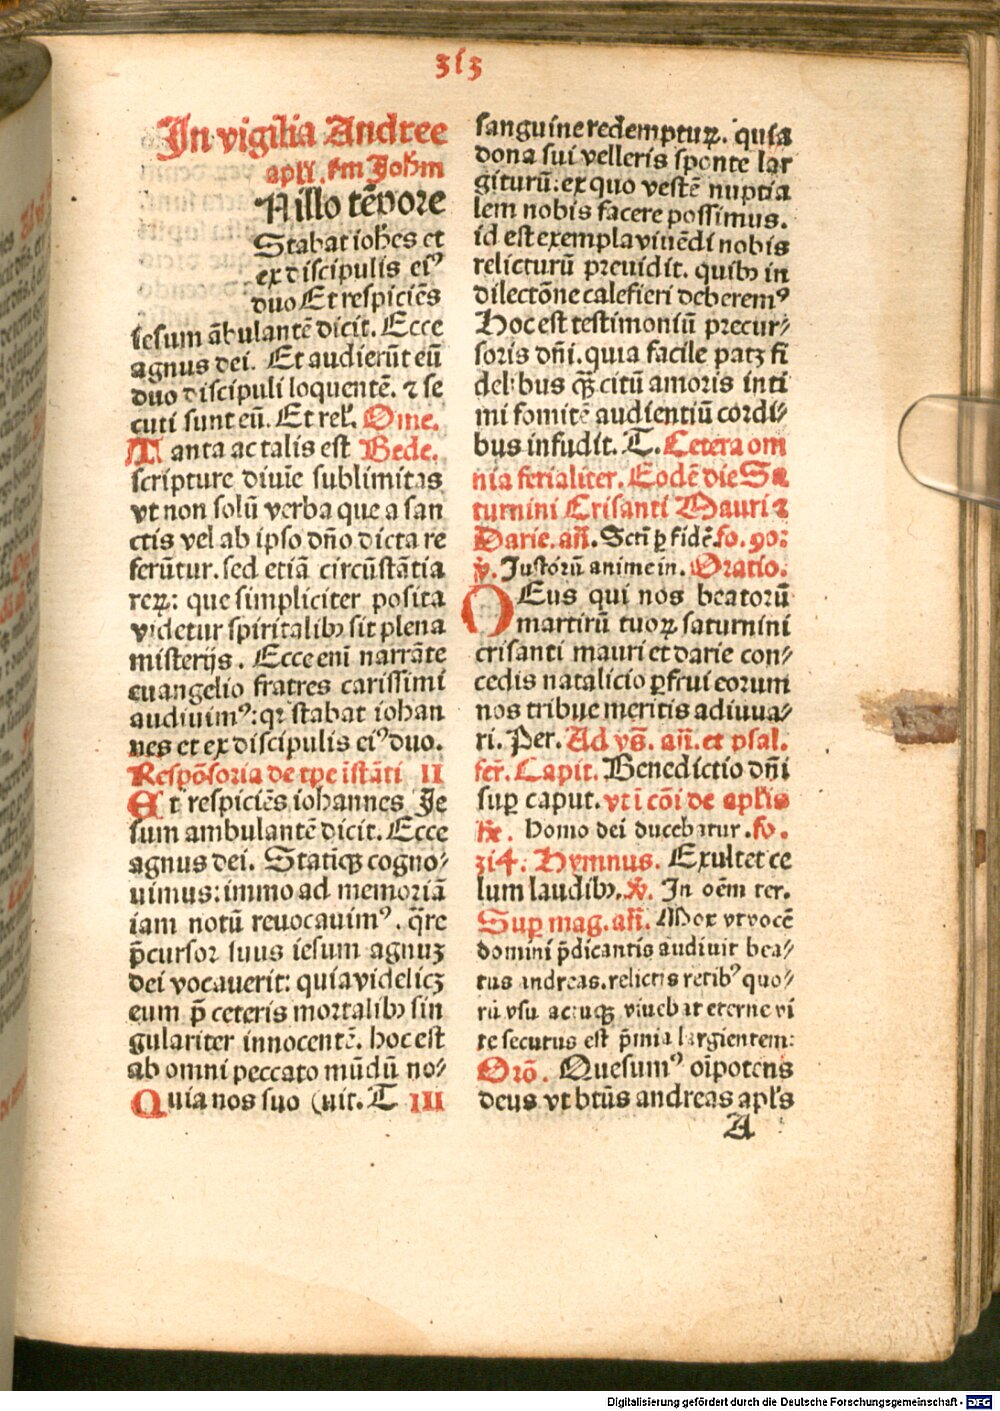 313
In vigilia Andree
apľi. ẜm Joħm
N illo tēpore
Stabat ioħes et
ex discipulis ei⁹
duo Et respiciēs
iesum ābulantē dicit. Ecce
agnus dei. Et audierūt eū
duo discipuli loquentē. ⁊ se
cuti sunt eū. Et reľ. Ome.
Tanta ac talis est Bede.
scripture diuīe sublimitas
vt non solū verba que a san
ctis vel ab ipso dño dicta re
ferūtur. sed etiā circūstātia
reꝝ: que simpliciter posita
videtur spiritalibꝫ sit plena
misterijs. Ecce enī narrāte
euangelio fratres carissimi
audiuim⁹: qꝛ stabat iohan
nes et ex discipulis ei⁹ duo.
Respōsoria de tpe īstāti II
Et respiciēs iohannes Je
sum ambulantē dicit. Ecce
agnus dei. Statiqꝫ cogno⸗
uimus: immo ad memoriā
iam notū reuocauim⁹. q̄re
p̄cursor suus iesum agnuꝫ
dei vocauerit: quia videlicꝫ
eum p̄ ceteris mortalibꝫ sin
gulariter innocentē. hoc est
ab omni peccato mūdū no⸗
Quia nos suo (uit. T III
sanguine redempturꝰ. quia
dona sui velleris sponte lar
giturū: ex quo vestē nuptia
lem nobis facere possimus.
id est exempla viuēdi nobis
relicturū preuidit. quibꝫ in
dilectōne calefieri deberem⁹
Hoc est testimoniū precur⸗
soris dñi. quia facile patꝫ fi
delibus qꝫ citū amoris inti
mi fomitē audientiū cordi⸗
bus infudit. T. Cetera om
nia ferialiter. Eodē die Sa
turnini Crisanti Mauri ⁊
Darie. añ. Scti ꝑ fidē. fo. 90:
v̇. Justorū anime in. Oratio.
DEus qui nos beatorū
martirū tuoꝝ saturnini
crisanti mauri et darie con⸗
cedis natalicio ꝑfrui eorum
nos tribue meritis adiuua⸗
ri. Per. Ad vs̄. añ. et psal.
fer̄. Capit. Benedictio dñi
suꝑ caput. vt ī cōi de apľis
℟. Homo dei ducebatur. fo.
314. Hymnus. Exultet ce
lum laudibꝫ. v̇. In oēm ter.
Suꝑ mag. añ. Mox vt vocē
domini p̄dicantis audiuit bea⸗
tus andreas. relictis retib⁹ quo⸗
rū vsu actuqꝫ viuebat eterne vi
te secutus est p̄mia largientem:
Orō. Quesum⁹ oīpotens
deus vt btūs andreas apľs
A
Digitalisierung gefördert durch die Deutsche Forschungsgemeinschaft - DFG